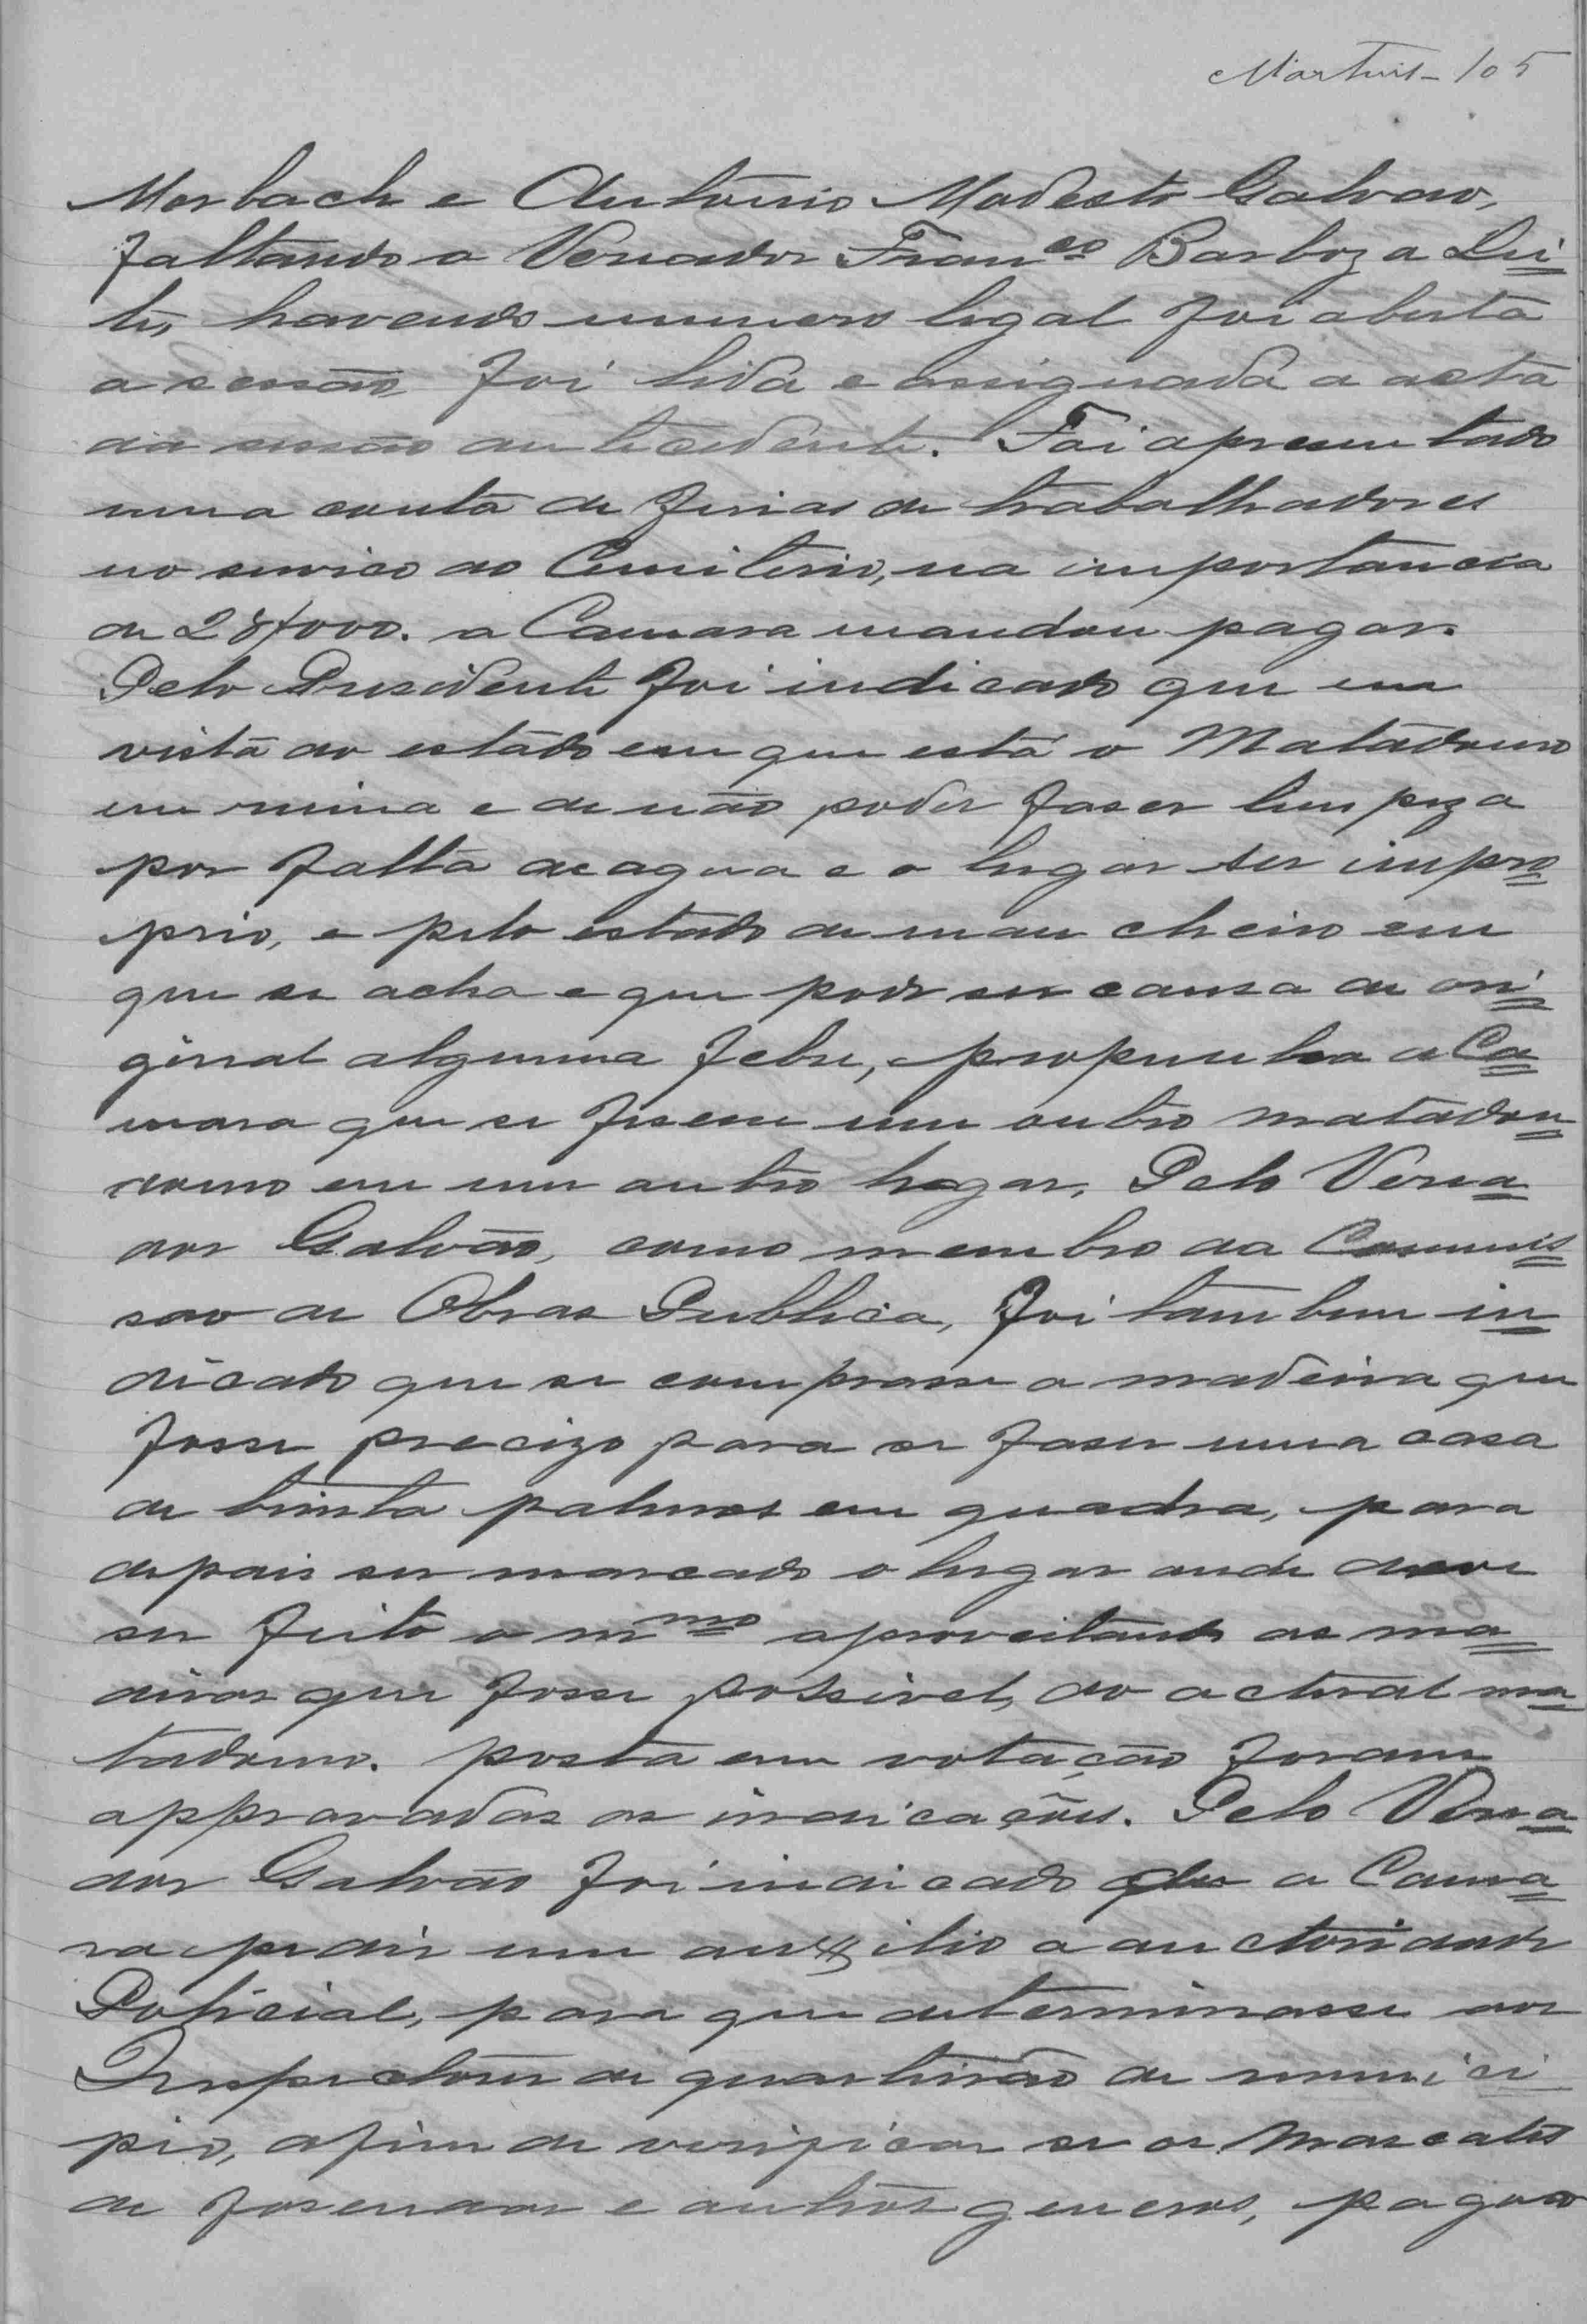 Martins - 105
Morbach e Antonio Modesto Galvão,
faltando o Vereador Fran.co Barboza Lei-
te, havendo numero legal foi aberta
a sessão foi lida e assignada a acta
da sessão antecedente. Foi apresentado
uma conta de ferias de trabalhadores
no serviço do Cemiterio, na importancia
de 28$000. a Camara mandou pagar.
Pelo Presidente foi indicado que em
vista do estado em que está o Matadouro
em ruina e de não poder faser limpeza
por falta de agua e o lugar ser impro-
prio, e pelo estado de mau cheiro em
que se acha e que pode ser causa de ori-
ginal alguma febre, propunha a Ca-
mara que se fisesse um outro matadou-
douro em um outro lugar. Pelo Verea-
dor Galvão, como membro da Commis-
sao de Obras Publica, foi tambem in-
dicado que se comprasse a madeira que
fosse precizo para se faser uma casa
de trinta palmos em quadra, para
depois ser marcado o lugar onde deve
ser feito o m.mo aproveitando as ma-
deiras que fosse possivel, do actual ma-
tadouro. posta em votação foram
approvadas as indicações. Pelo Verea-
dor Galvão foi indicado que a Cama-
ra pedir um auxilio a auctoridade
Policial, para que determinasse aos
Inspectores de quarteirão do munici-
pio, afim de verificar se os Mascates
de fasendas e outros generos, pagão